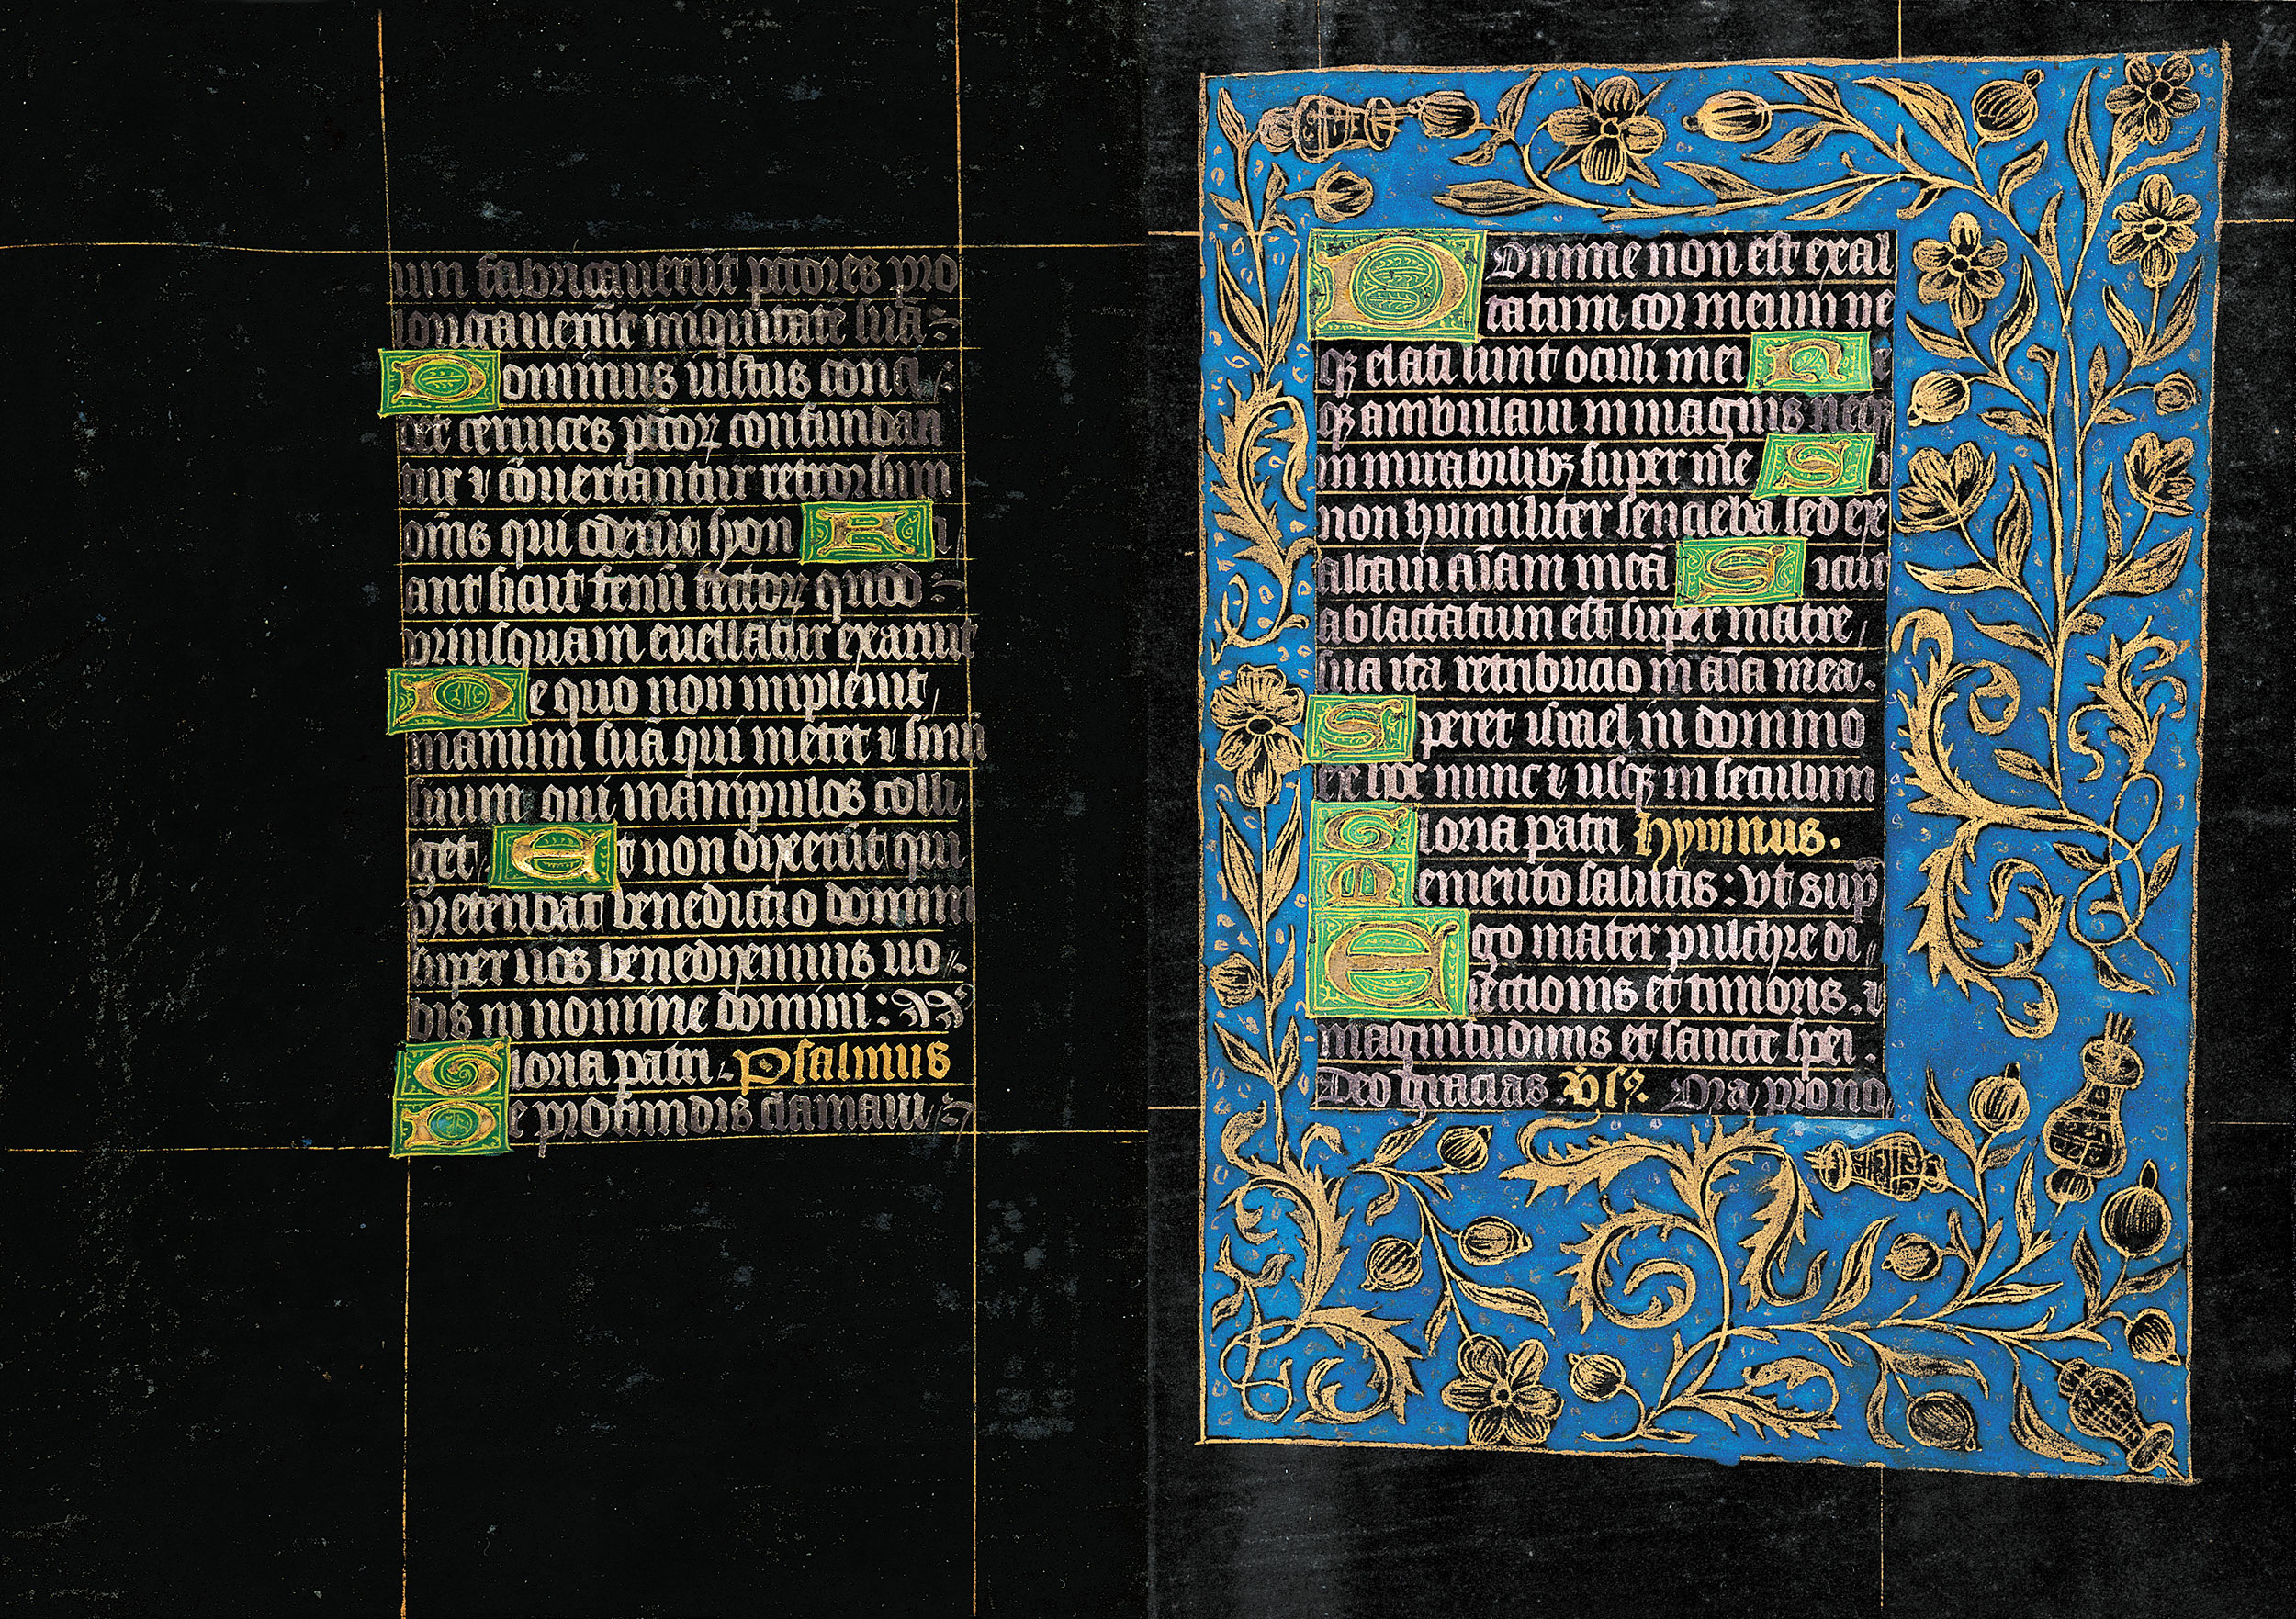 um fabricauerūt pctōres pro
longauerūt iniquitatē suā
Dominus iustus conci
det ceruices pctōꝝ confundan
tur ⁊ cōuertantur retrorsum
om̄s qui oderūt syon Fi
ant sicut fenū tectoꝝ quod
priusquam euellatur exaruit
De quo non impleuit
manum suā qui metet ⁊ sinū
suum qui manipulos colli
get Et non dixerūt qui
preteribāt benedictio domini
super uos benediximus uo
bis in nomine domini:
Gloria patri. Psalmus
De profundis clamaui
Domine non est exal
tatum cor meum ne
qꝫ elati sunt oculi mei Ne
qꝫ ambulaui in magnis neqꝫ
in mirabilibꝫ super me Si
non humiliter sencieba sed exe
altaui aīam meā Sicut
ablactatum est super matre
sua ita retribucio in aīa mea.
Speret israel in domino
ex hoc nunc ⁊ usqꝫ in seculum
Gloria patri Hymnus.
Memento salutis: vt sup̄
Ego mater pulchre di
lectionis et timoris. ⁊
magnitudinis et sancte spei.
Deo gracias. v̄s. Ora pro no